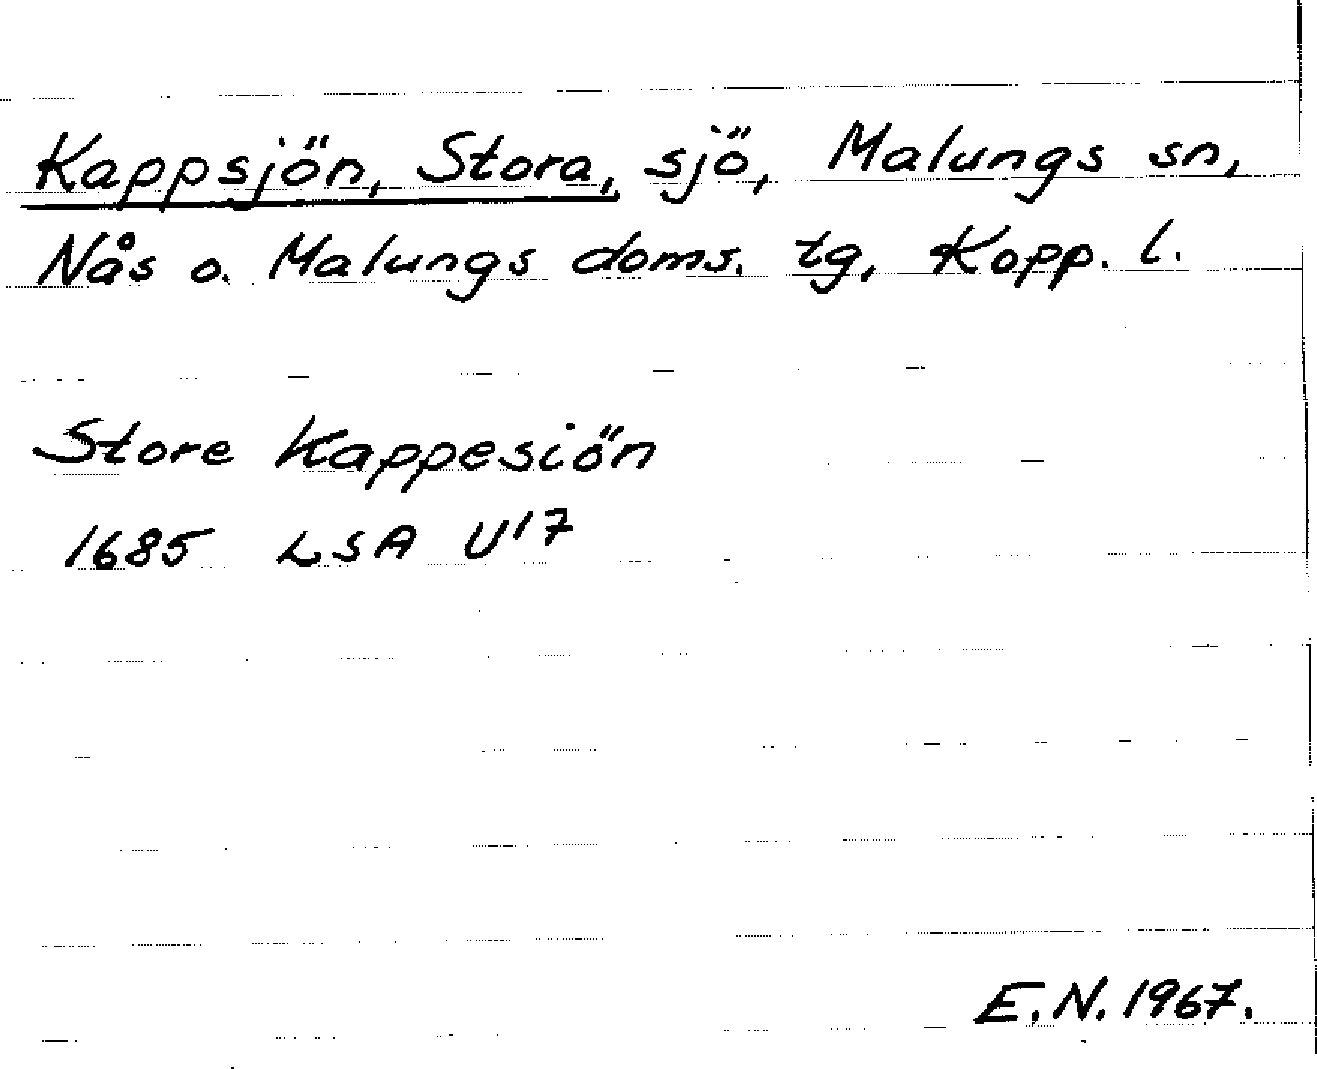 Kappsjön, Stora, sjö, Malungs sn,
Nås o. Malungs doms. tg, Kopp. l.
Store Kappesiön
1685 LSA U17
E.N. 1967.